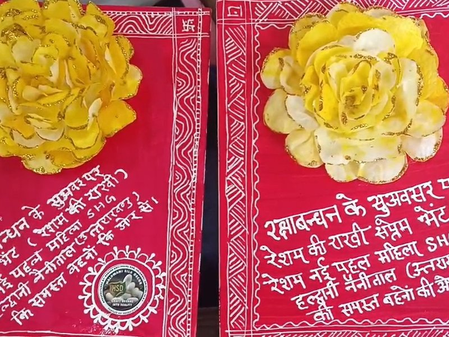 न्धन के सुअवसर पर
भेंट (रेशम की राखी)
महिला SHG
नैनीताल (उत्तराखण्ड)
कि समस्त बहनों की ओर से।
रक्षाबन्धन के सुअवसर प
रेशम की राखी सप्रेम भेंट
रेशम महिला SH
हल्द्वानी नैनीताल (उत्तरा
की समस्त बहनों की ओ